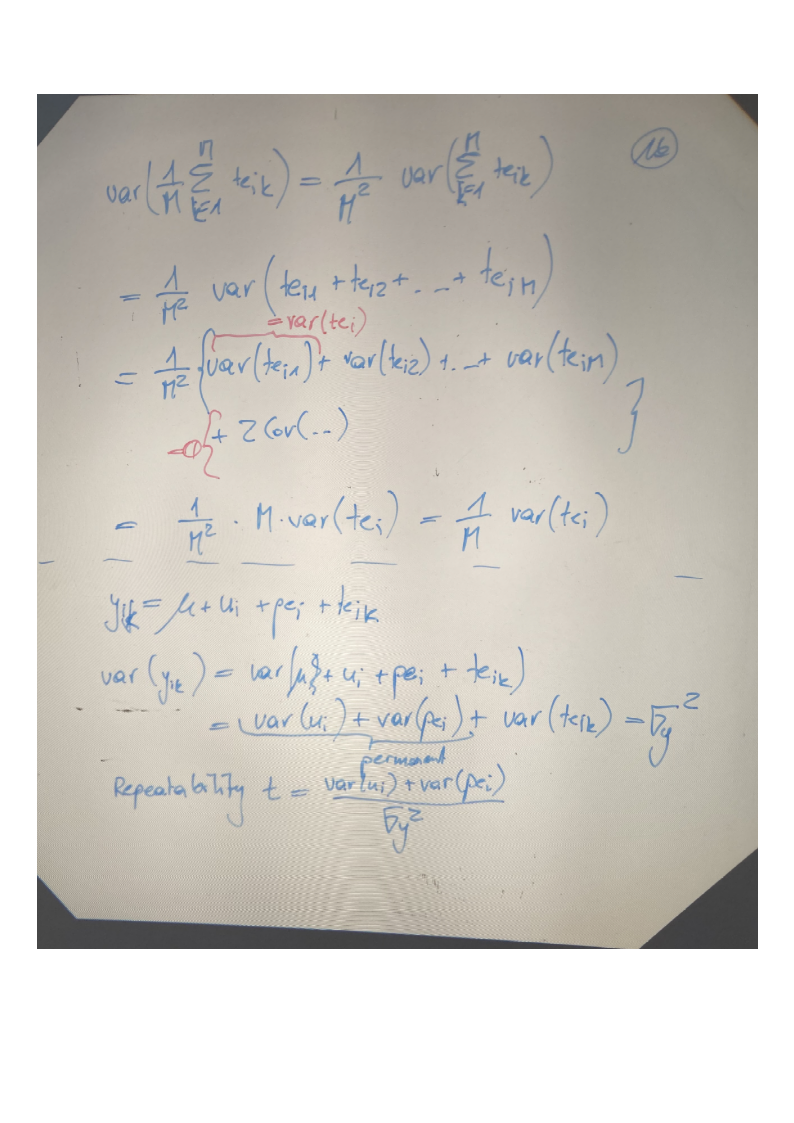 16
var(1/M Σ_{k=1}^{M} te_{ik}) = 1/M² var(Σ_{k=1}^{M} te_{ik})
= 1/M² var(te_{i1} + te_{i2} + ... + te_{iM})
= var(te_i)
= 1/M² · {var(te_{i1}) + var(te_{i2}) + ... + var(te_{iM})
+ 2 Cov(...) }
= 1/M² · M · var(te_i) = 1/M var(te_i)
y_{ik} = μ + u_i + pe_i + te_{ik}
var(y_{ik}) = var(μ + u_i + pe_i + te_{ik})
= var(u_i) + var(pe_i) + var(te_{ik}) = σ_y²
permanent
Repeatability t = (var(u_i) + var(pe_i)) / σ_y²